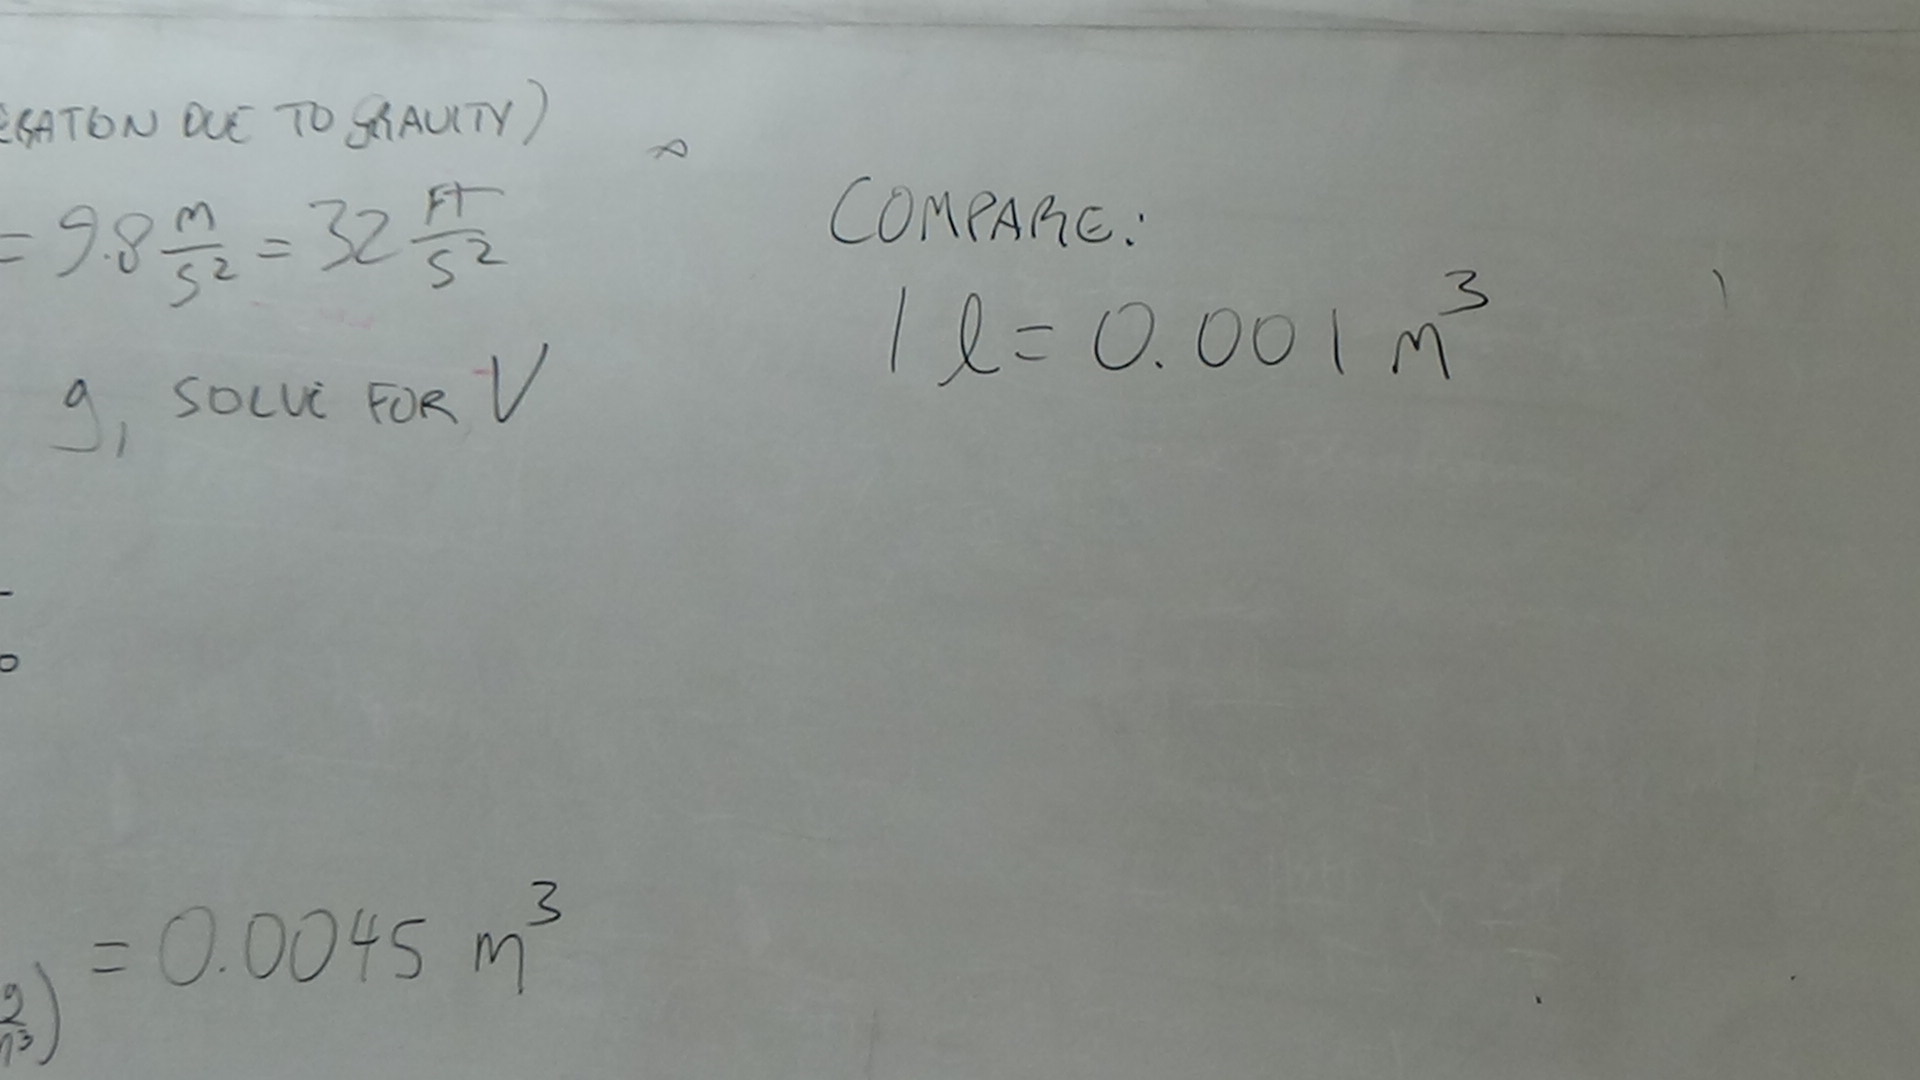 ERATION DUE TO GRAVITY)
= 9.8 m/s² = 32 FT/s²
g, SOLVE FOR V
= 0.0045 m³
COMPARE:
1 l = 0.001 m³